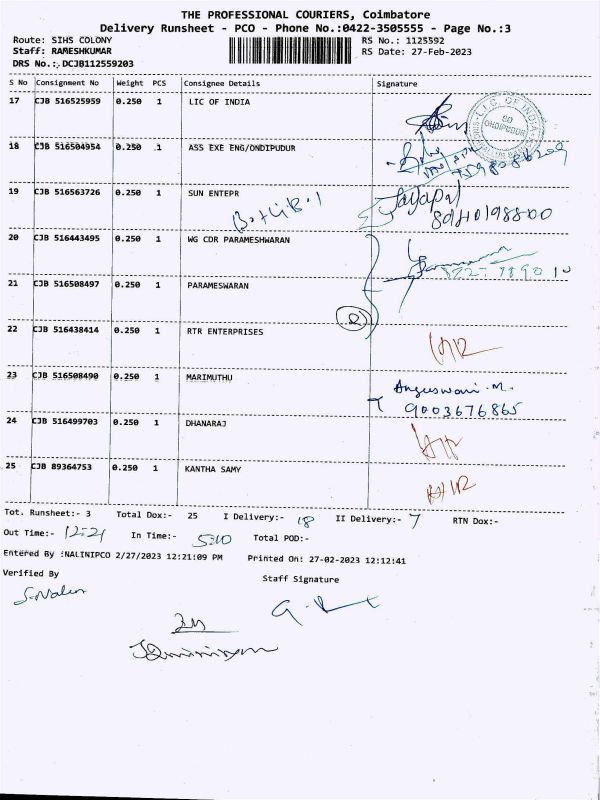 THE PROFESSIONAL COURIERS, Coimbatore
Delivery Runsheet - PCO - Phone No.:0422-3505555 - Page No.:3
Route: SIHS COLONY
RS No.: 1125592
Staff: RAMESHKUMAR
RS Date: 27-Feb-2023
DRS No.:.DCJB112559203
S No Consignment No Weight PCS Consignee Details Signature
17 CJB 516525959 0.250 1 LIC OF INDIA
L.I.C. OF INDIA SO ONDIPUDUR
18 CJB 516504954 0.250 1 ASS EXE ENG/ONDIPUDUR
19 CJB 516563726 0.250 1 SUN ENTEPR Jayapal
20 CJB 516443495 0.250 1 WG CDR PARAMESHWARAN
21 CJB 516508497 0.250 1 PARAMESWARAN
2
22 CJB 516438414 0.250 1 RTR ENTERPRISES
23 CJB 516508490 0.250 1 MARIMUTHU
9003676865
24 CJB 516499703 0.250 1 DHANARAJ
25 CJB 89364753 0.250 1 KANTHA SAMY
Tot. Runsheet:- 3 Total Dox:- 25 I Delivery:- 18 II Delivery:- 7 RTN Dox:-
Out Time:- 12:21 In Time:- 5:10 Total POD:-
Entered By :NALINIPCO 2/27/2023 12:21:09 PM Printed On: 27-02-2023 12:12:41
Verified By Staff Signature
S.Nalini